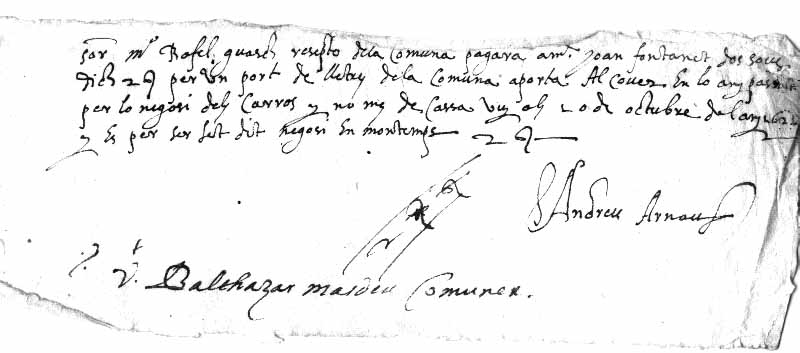 sor mº Rafel guasch reseptor dela Comuna pagara a mº Joan fontanet dos sous
dich 2 s per un port de lletres dela Comuna aporta Al Cover En lo any passat
per lo negosi dels Carros y no mes de Cassa vuy als 20 de octubre de l any 162
y Es per ser fet dit negosi En mon temps 2 s
Andreu Arnau
vt. Balthazar masdeu Comuner.